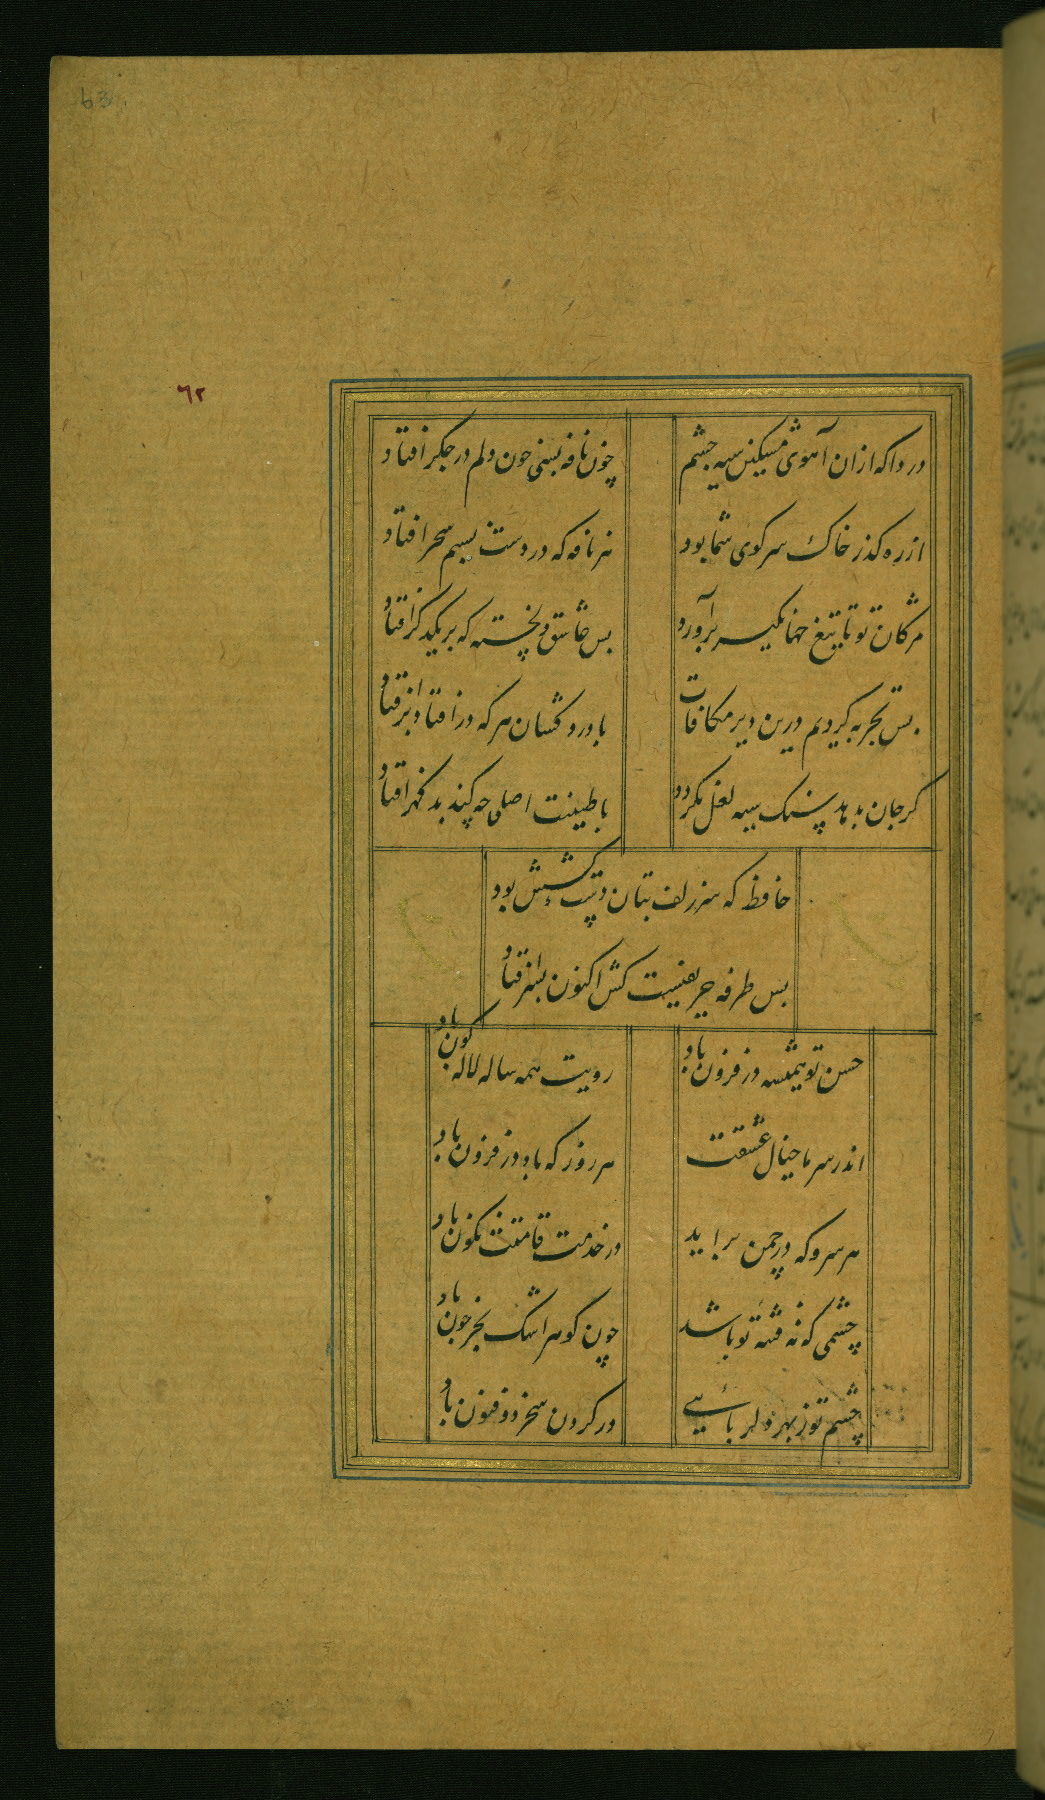 63
٦٢
دردا که ازان آهوی مشکین سیه چشم چون نافه بسی خون دلم در جگر افتاد
از ره گذر خاک سر کوی شما بود هر نافه که در دست نسیم سحر افتاد
مژگان تو تا تیغ جهانگیر برآورد بس عاشق دلخسته که بر یکدگر افتاد
بس تجربه کردیم درین دیر مکافات با دردکشان هر که درافتاد برافتاد
گر جان بدهد سنگ سیه لعل نگردد با طینت اصلی چه کند بد گهر افتاد
حافظ که سر زلف بتان دست کشش بود
بس طرفه حریفیست کش اکنون بسر افتاد
حسن تو همیشه در فزون باد رویت همه ساله لاله گون باد
اندر سر ما خیال عشقت هر روز که باد در فزون باد
هر سرو که در چمن براید در خدمت قامتت نگون باد
چشمی که نه فتنه تو باشد چون گوهر اشک بحر خون باد
چشم تو ز بهر دلربائی در کردن سحر ذوفنون باد